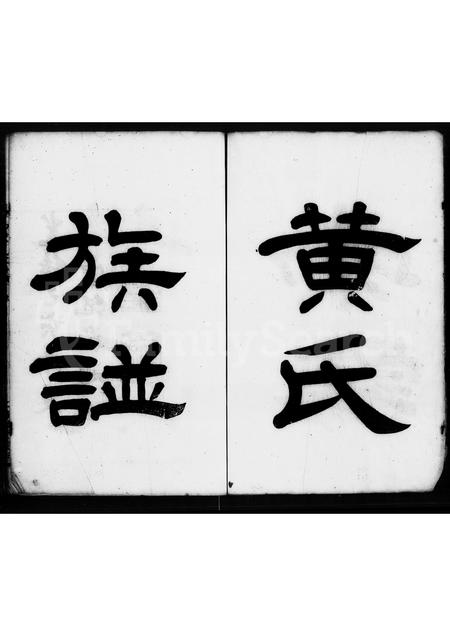 黃氏
族譜
FamilySearch